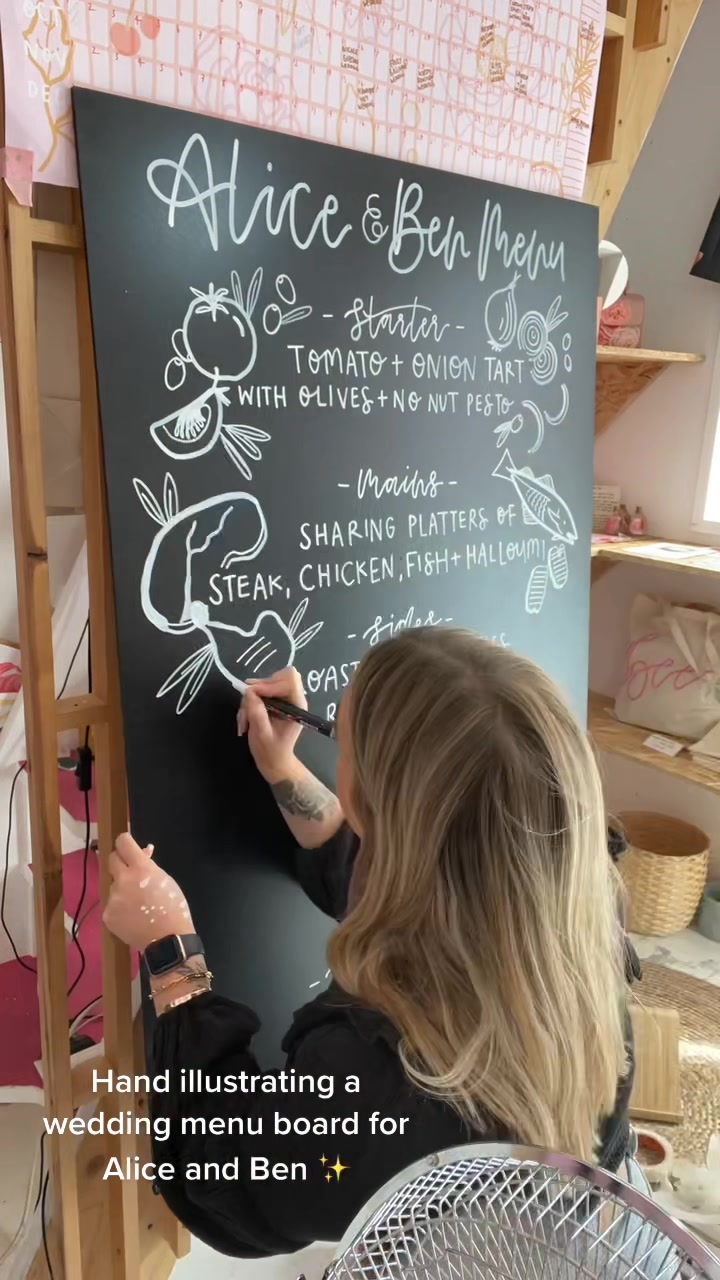 OCT
NOV
DE
Alice & Ben Menu
- Starter -
TOMATO + ONION TART
WITH OLIVES + NO NUT PESTO
- Mains -
SHARING PLATTERS OF
STEAK, CHICKEN, FISH + HALLOUMI
- Sides -
Hand illustrating a
wedding menu board for
Alice and Ben ✨